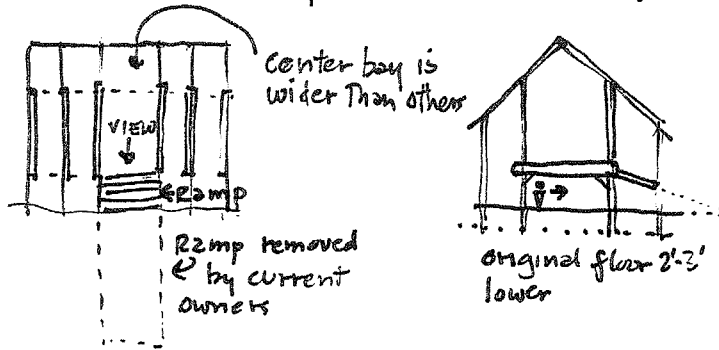 center bay is
wider Than others
VIEW
Ramp
Ramp removed
by current
owners
original floor 2'-3'
lower